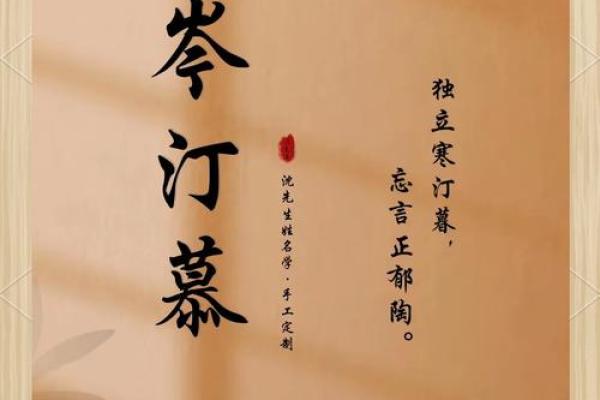 岑汀慕
沈先生姓名学·手工定制
独立寒汀暮，
忘言正郁陶。